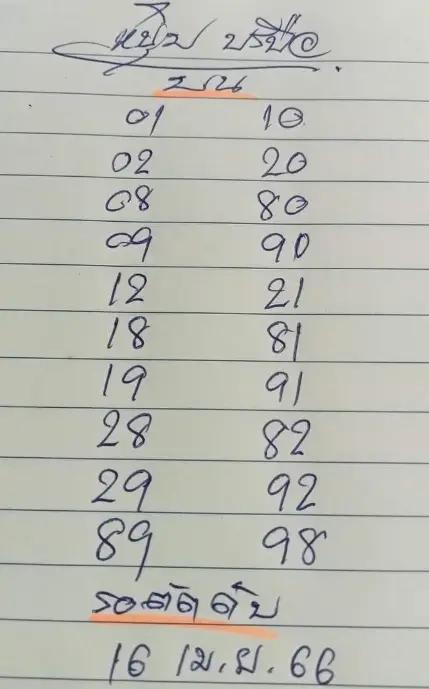 บน
01 10
02 20
08 80
09 90
12 21
18 81
19 91
28 82
29 92
89 98
รอตัดดับ
16 เม.ย. 66